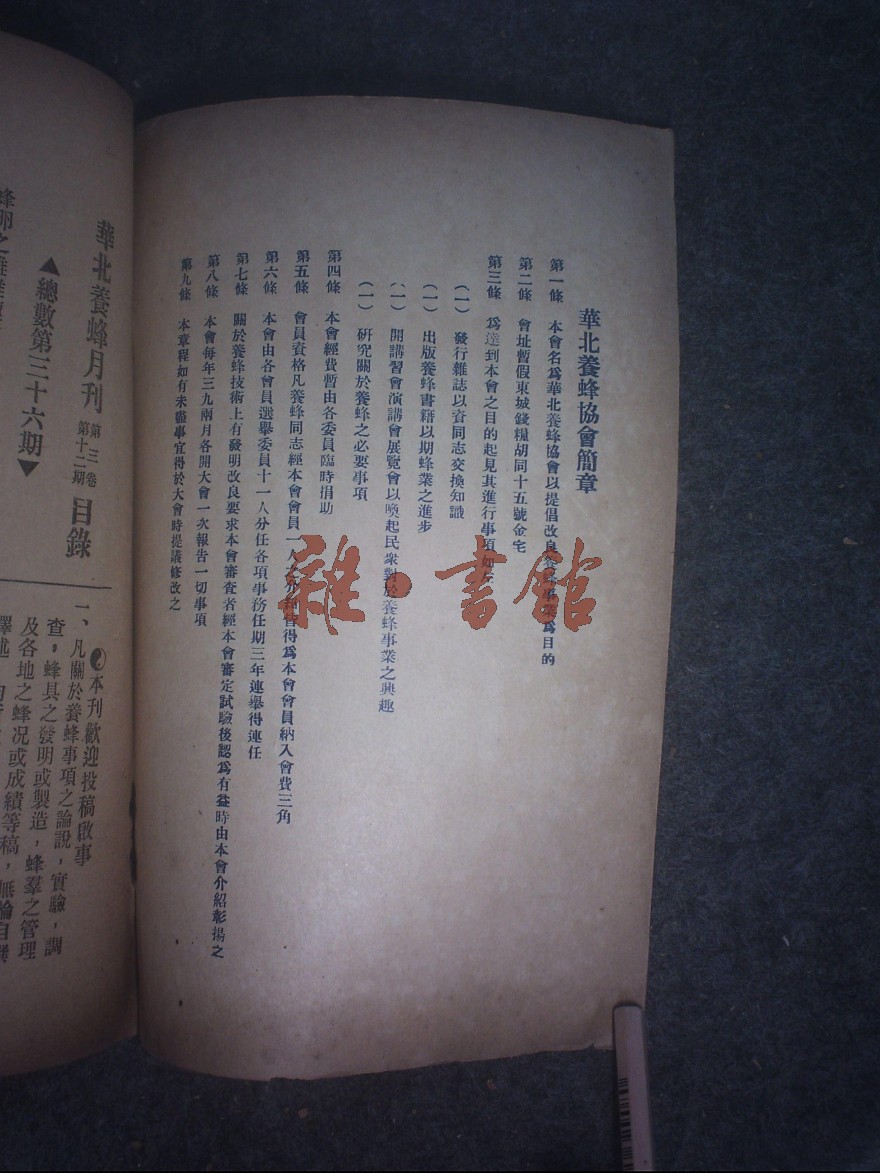 華北養蜂協會簡章
第一條　本會名為華北養蜂協會以提倡改良養蜂事業為目的
第二條　會址暫假東城錢糧胡同十五號金宅
第三條　為達到本會之目的起見其進行事項如左
（一）　發行雜誌以資同志交換知識
（一）　出版養蜂書籍以期蜂業之進步
（一）　開講習會演講會展覽會以喚起民衆對於養蜂事業之興趣
（一）　研究關於養蜂之必要事項
第四條　本會經費暫由各委員臨時捐助
第五條　會員資格凡養蜂同志經本會會員一人之介紹皆得為本會會員納入會費三角
第六條　本會由各會員選舉委員十一人分任各項事務任期三年連舉得連任
第七條　關於養蜂技術上有發明改良要求本會審查者經本會審定試驗後認為有益時由本會介紹彰揚之
第八條　本會每年三九兩月各開大會一次報告一切事項
第九條　本章程如有未盡事宜得於大會時提議修改之
雜·書館
華北養蜂月刊　第三卷　第十二期　目錄
▲總數第三十六期▼
蜂卵之
本刊歡迎投稿啟事
一、凡關於養蜂事項之論說，實驗，調
查，蜂具之發明或製造，蜂羣之管理
及各地之蜂况或成績等稿，無論自撰
譯述